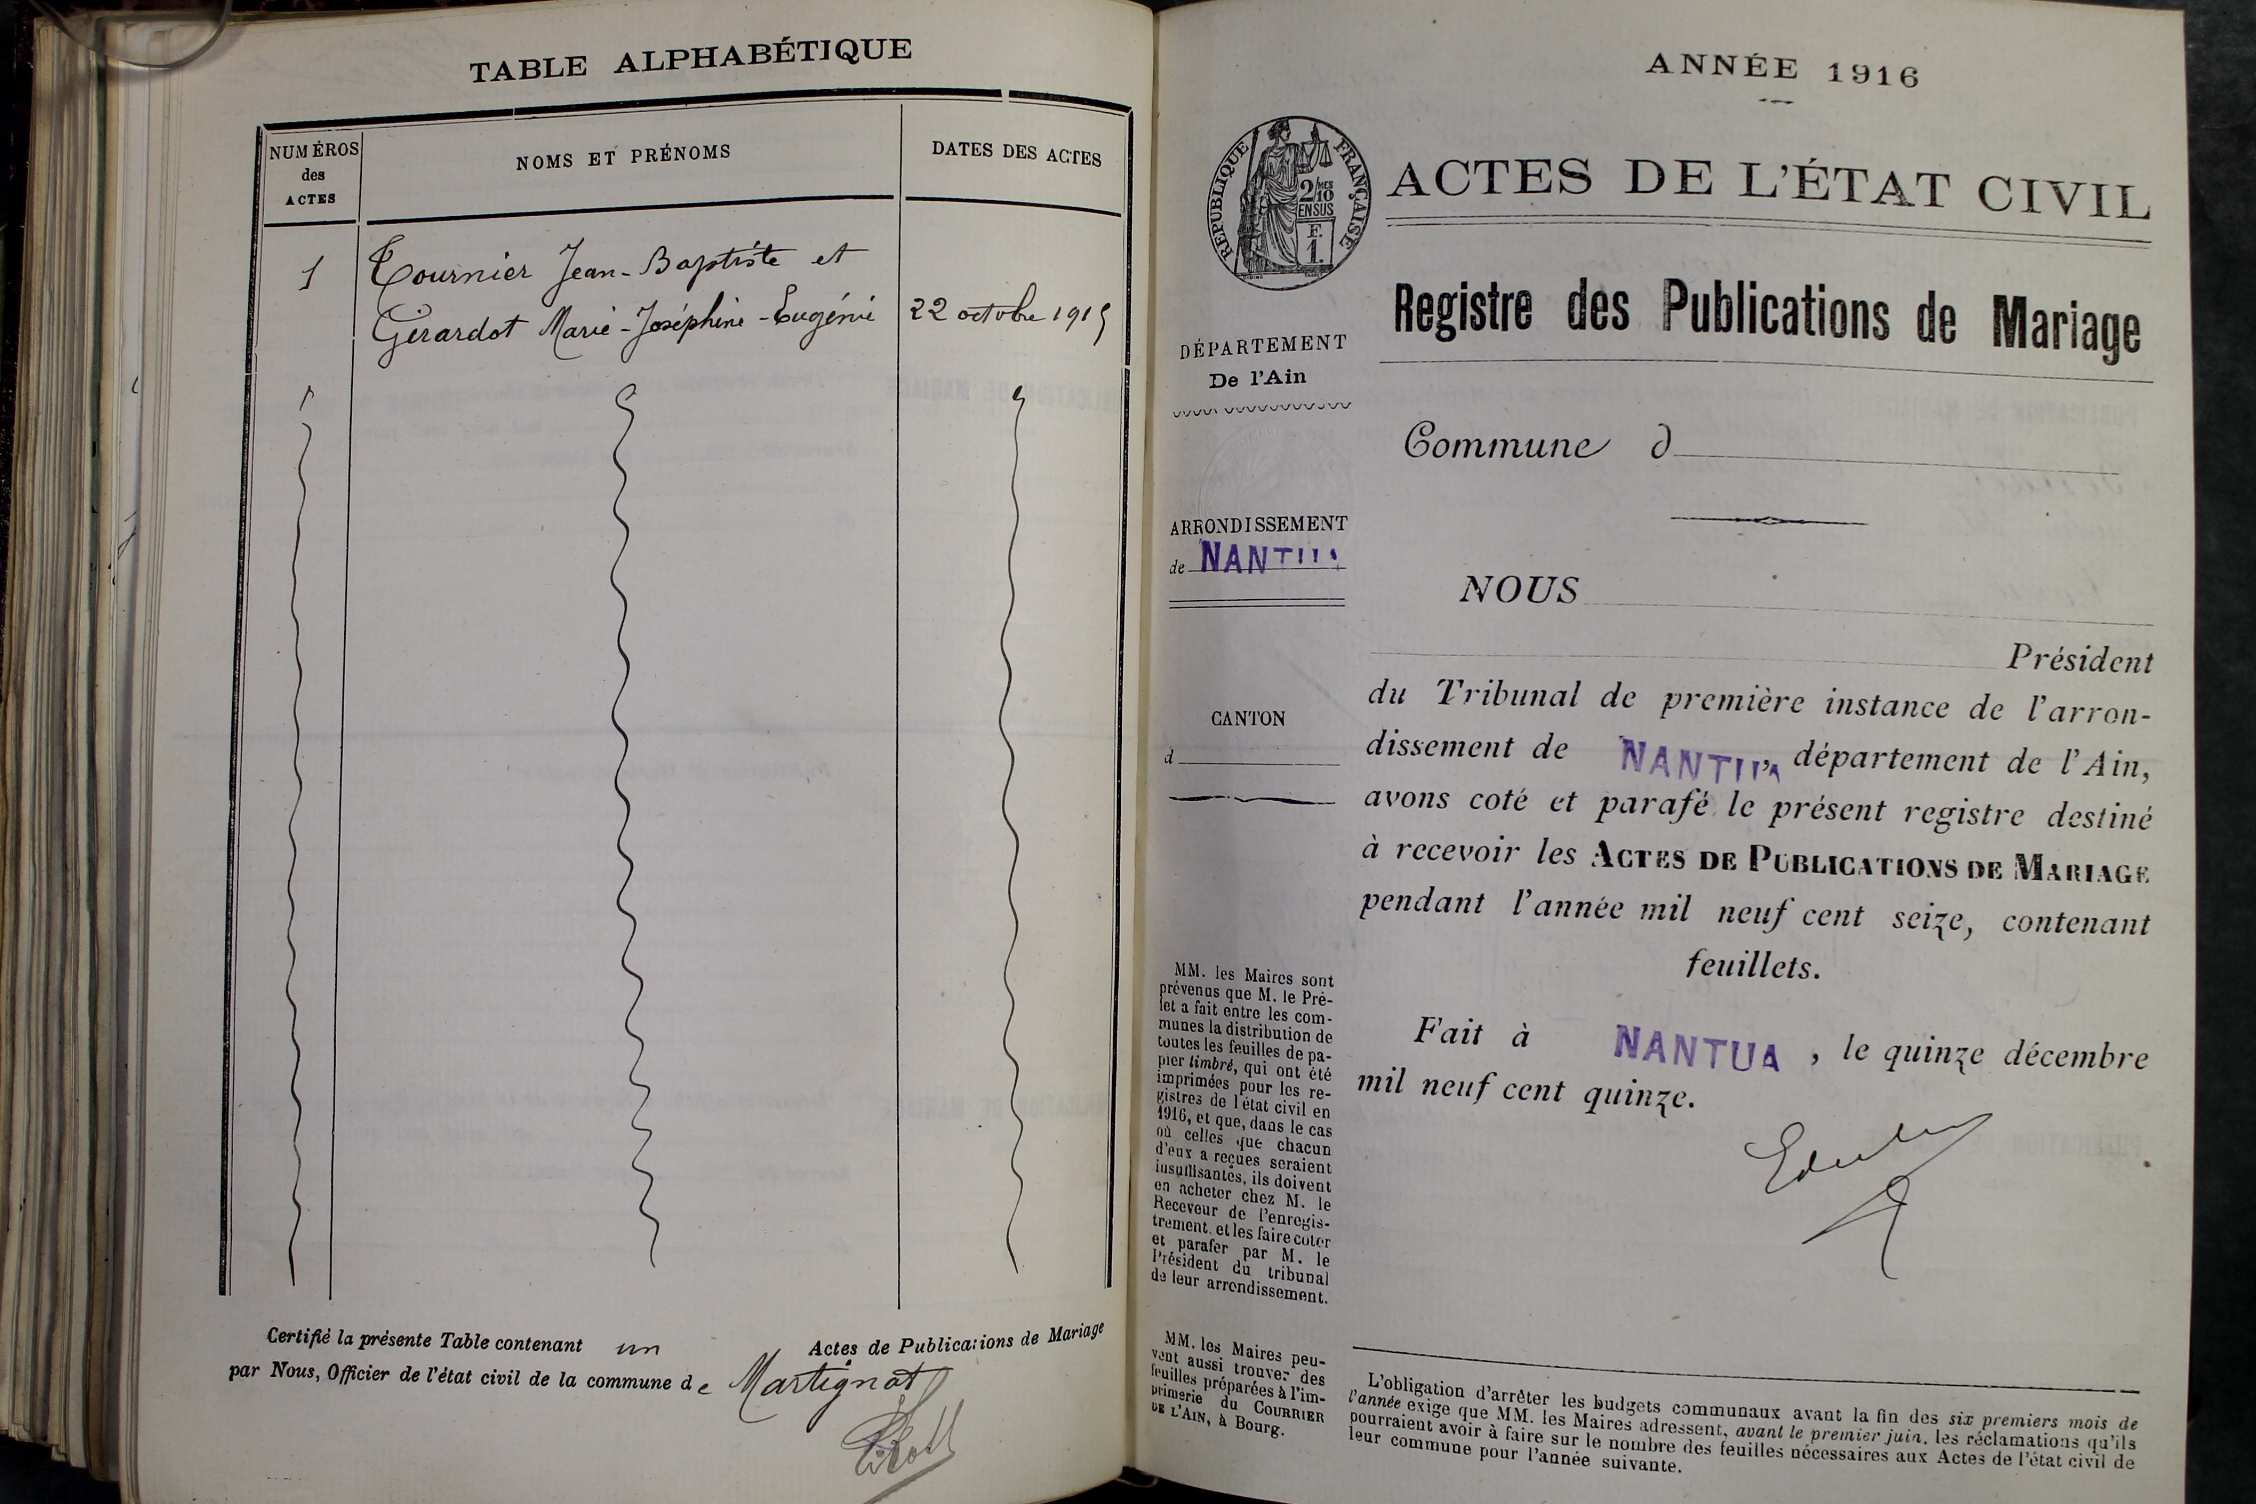 TABLE ALPHABÉTIQUE
NUMÉROS
des
ACTES
NOMS ET PRÉNOMS
DATES DES ACTES
1
Tournier Jean-Baptiste et
Girardot Marie-Joséphine-Eugénie
22 octobre 1915
Certifié la présente Table contenant un Actes de Publications de Mariage
par Nous, Officier de l'état civil de la commune de Martignat
ANNÉE 1916
RÉPUBLIQUE FRANÇAISE
2/MES
10
EN SUS
F.
1.
ACTES DE L'ÉTAT CIVIL
Registre des Publications de Mariage
DÉPARTEMENT
De l'Ain
ARRONDISSEMENT
de NANTUA
CANTON
d
MM. les Maires sont
prévenus que M. le Pré-
fet a fait entre les com-
munes la distribution de
toutes les feuilles de pa-
pier timbré, qui ont été
imprimées pour les re-
gistres de l'état civil en
1916, et que, dans le cas
où celles que chacun
d'eux a reçues seraient
insuffisantes, ils doivent
en acheter chez M. le
Receveur de l'enregis-
trement, et les faire coter
et parafer par M. le
Président du tribunal
de leur arrondissement.
MM. les Maires peu-
vent aussi trouver des
feuilles préparées à l'im-
primerie du COURRIER
DE L'AIN, à Bourg.
Commune d
NOUS
Président
du Tribunal de première instance de l'arron-
dissement de NANTUA, département de l'Ain,
avons coté et parafé le présent registre destiné
à recevoir les ACTES DE PUBLICATIONS DE MARIAGE
pendant l'année mil neuf cent seize, contenant
feuillets.
Fait à NANTUA, le quinze décembre
mil neuf cent quinze.
L'obligation d'arrêter les budgets communaux avant la fin des six premiers mois de
l'année exige que MM. les Maires adressent, avant le premier juin, les réclamations qu'ils
pourraient avoir à faire sur le nombre des feuilles nécessaires aux Actes de l'état civil de
leur commune pour l'année suivante.